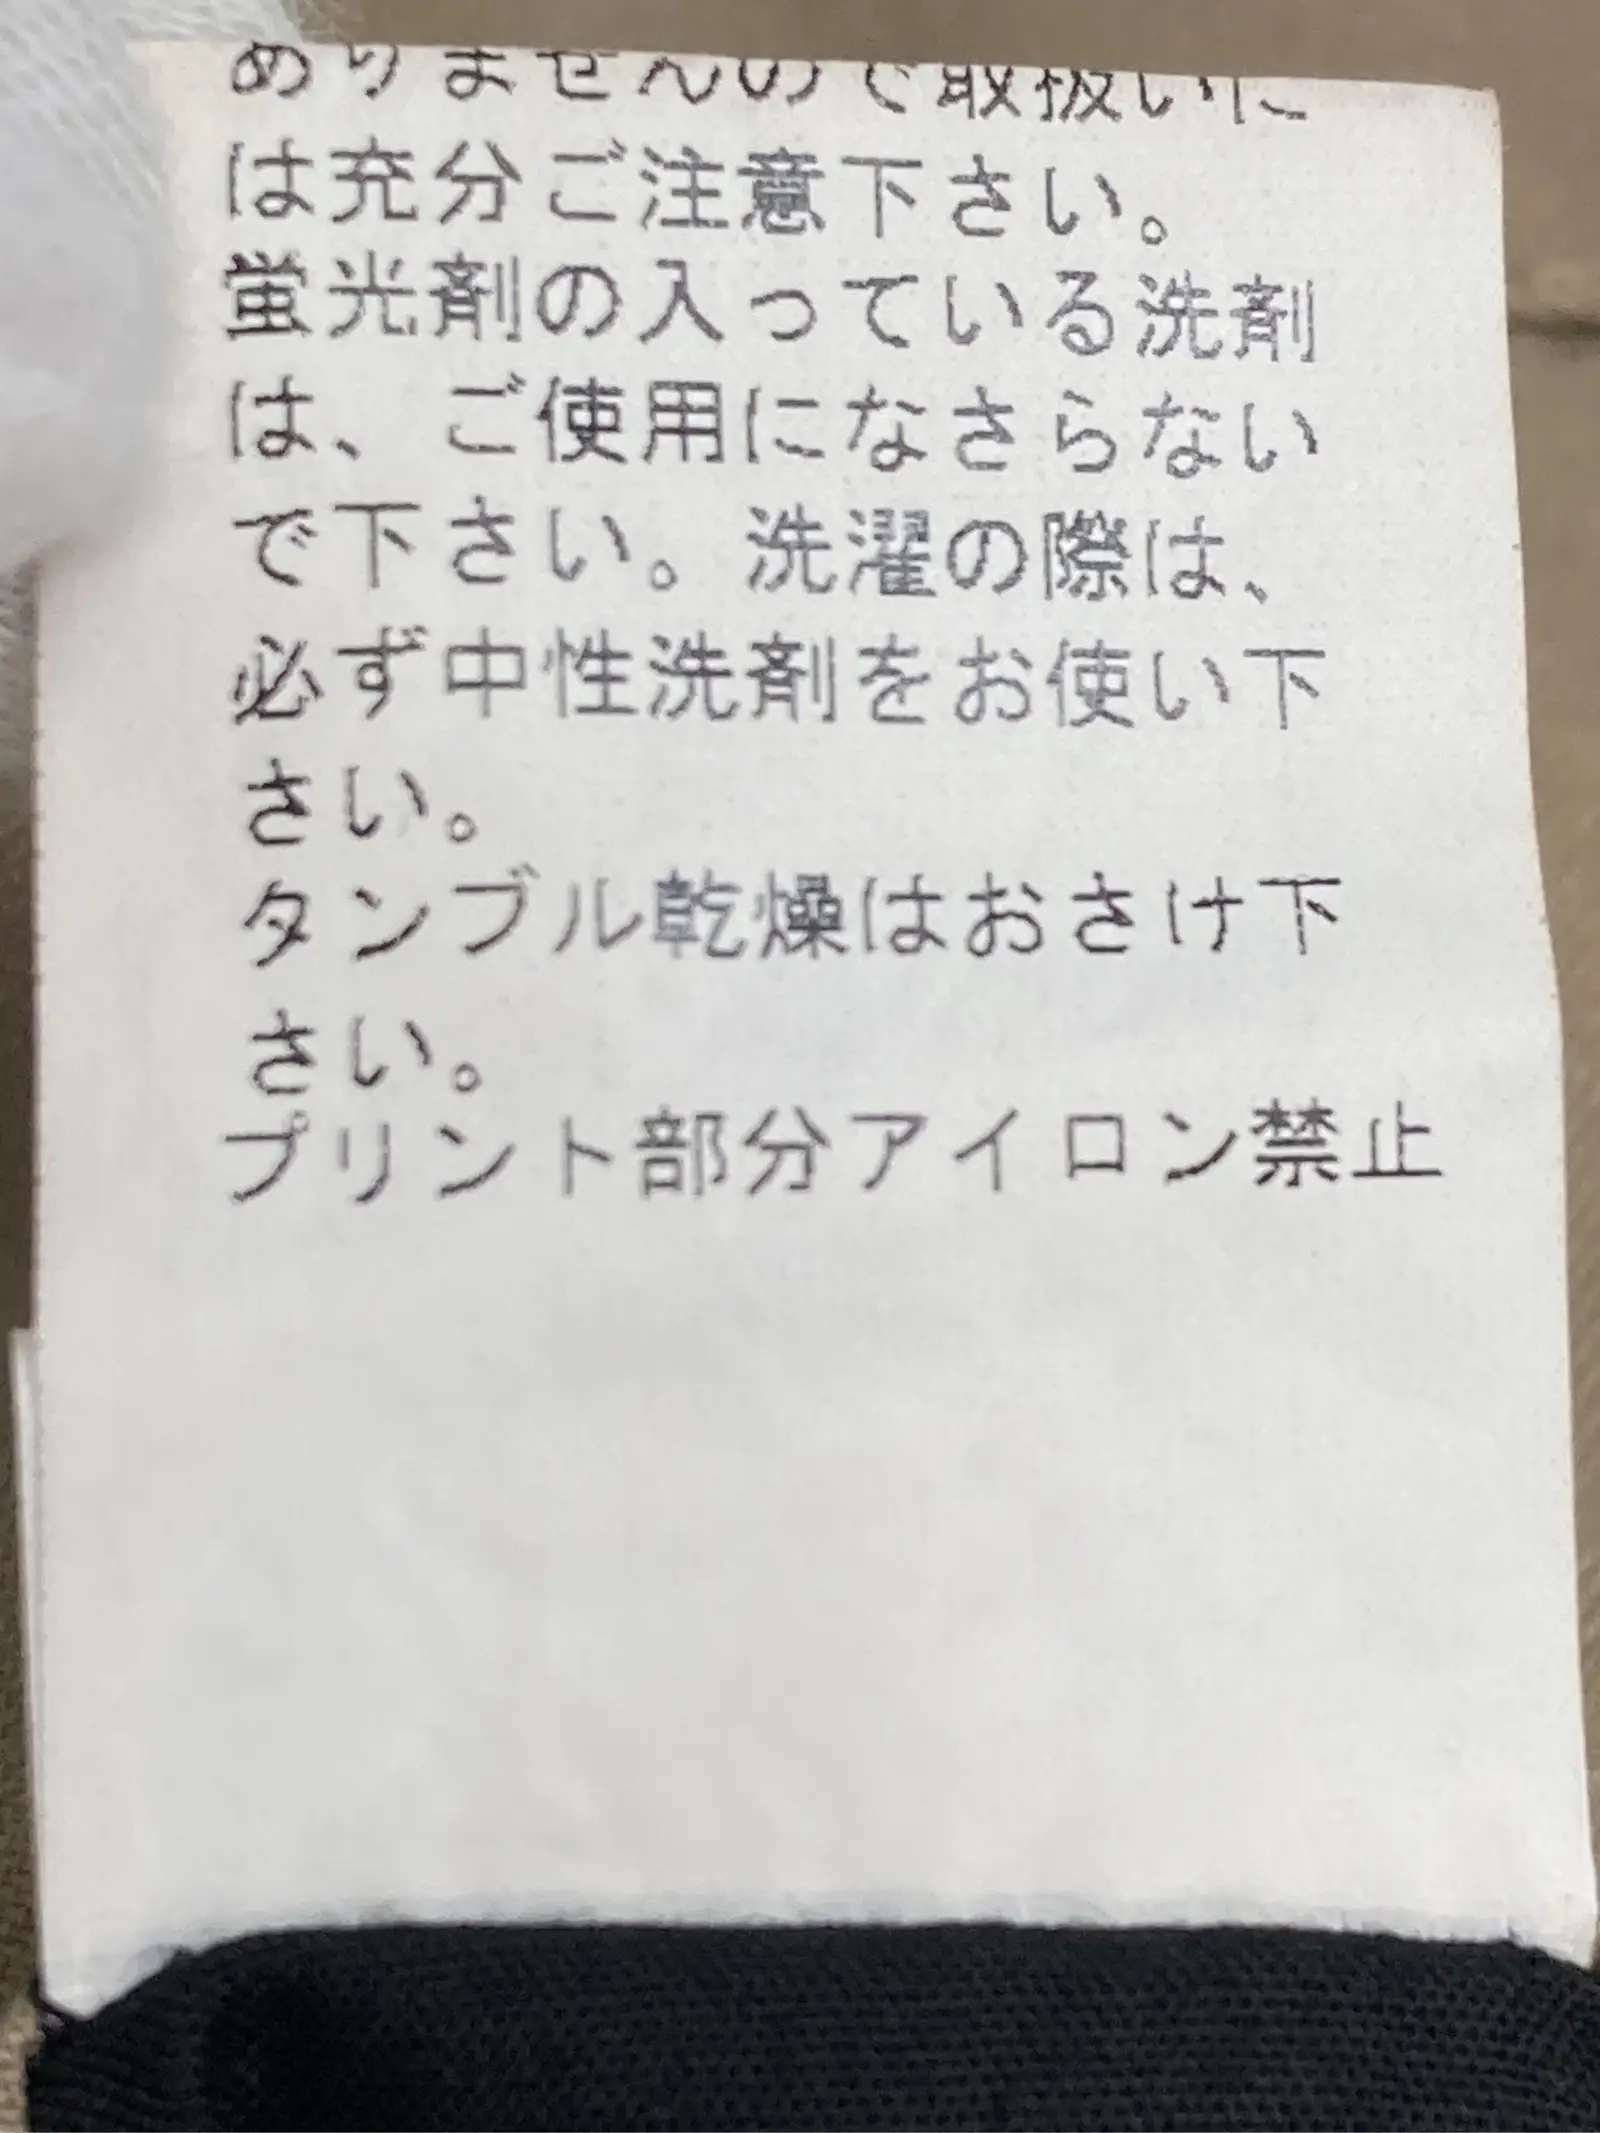 ありませんので取扱いに
は充分ご注意下さい。
蛍光剤の入っている洗剤
は、ご使用になさらない
で下さい。洗濯の際は、
必ず中性洗剤をお使い下
さい。
タンブル乾燥はおさけ下
さい。
プリント部分アイロン禁止